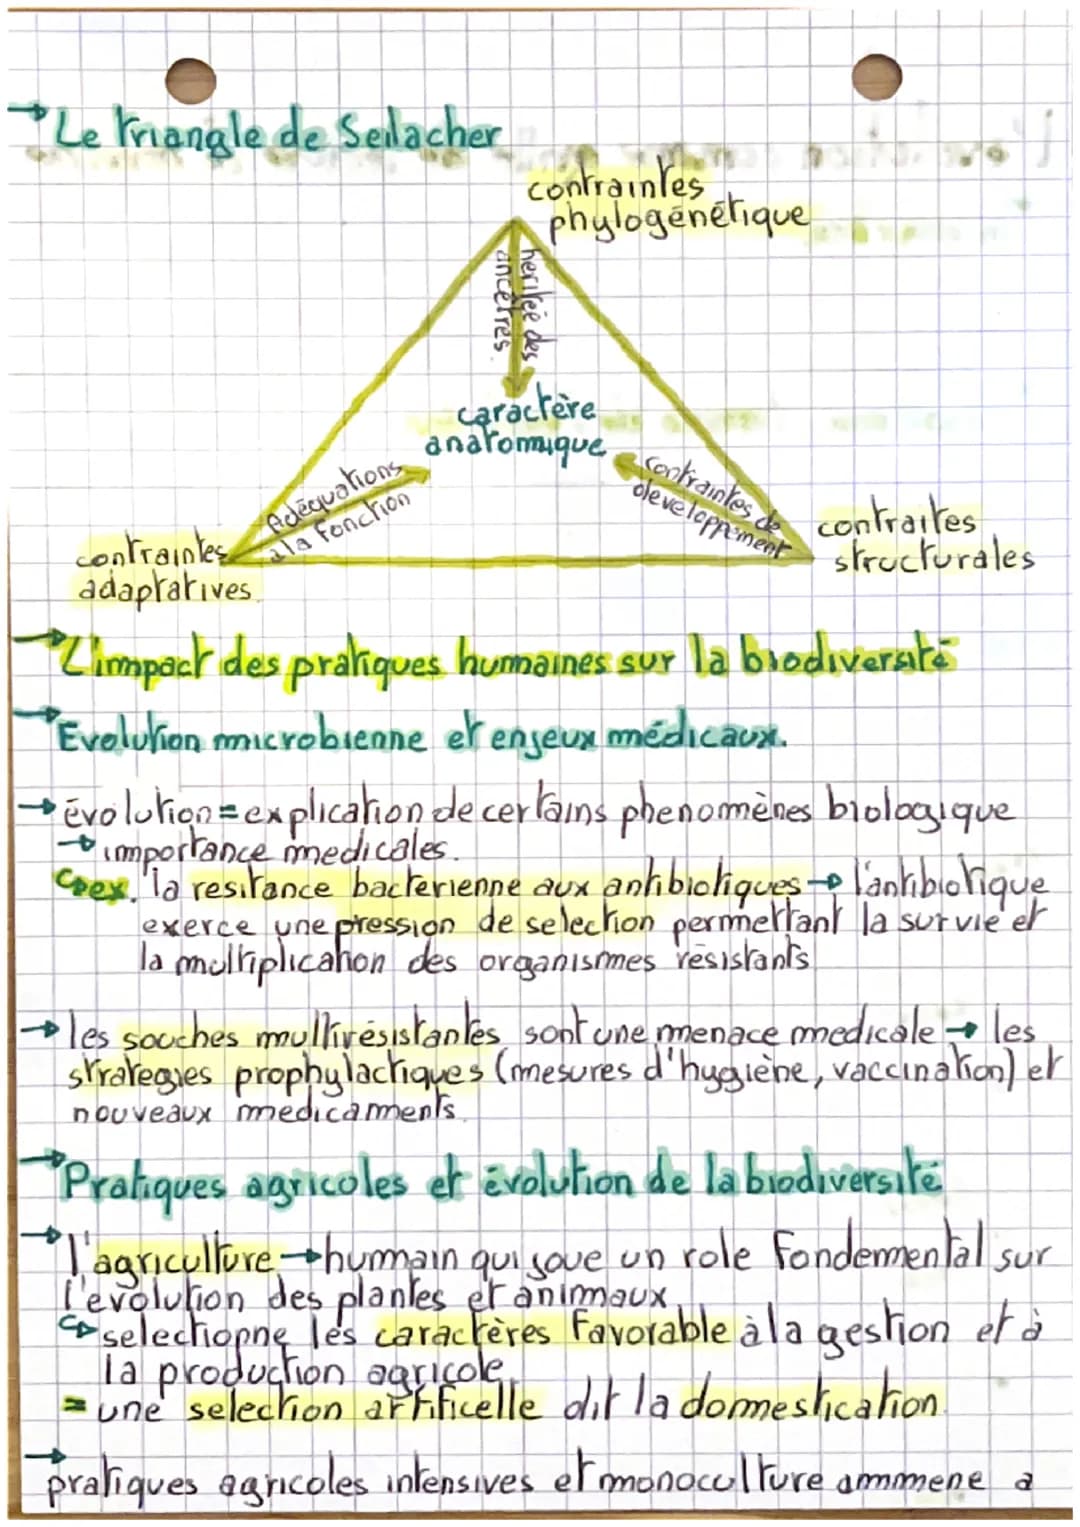 → Le triangle de Seilacher
contraintes
phylogénétique
héritéé des
ancêtres.
caractère
anatomique
Adéquations
a la fonction
contraintes de
developpement
contraintes
adaptatives
contraites
structurales
→ L'impact des pratiques humaines sur la biodiversité
→ Evolution microbienne et enjeux médicaux.
→ évolution = explication de certains phenomènes biologique
→ importance medicales.
↳ ex. la resitance bacterienne aux antibiotiques → l'antibiotique
exerce une pression de selection permettant la survie et
la multiplication des organismes résistants
→ les souches multirésistantes sont une menace medicale → les
strategies prophylactiques (mesures d'hygiène, vaccination) et
nouveaux medicaments.
→ Pratiques agricoles et évolution de la biodiversité
→ l'agriculture → humain qui joue un role fondemental sur
l'évolution des plantes et animaux
↳ selectionne les caractères favorable à la gestion et à
la production agricole.
= une selection artificelle dit la domestication.
→ pratiques agricoles intensives et monoculture ammene a